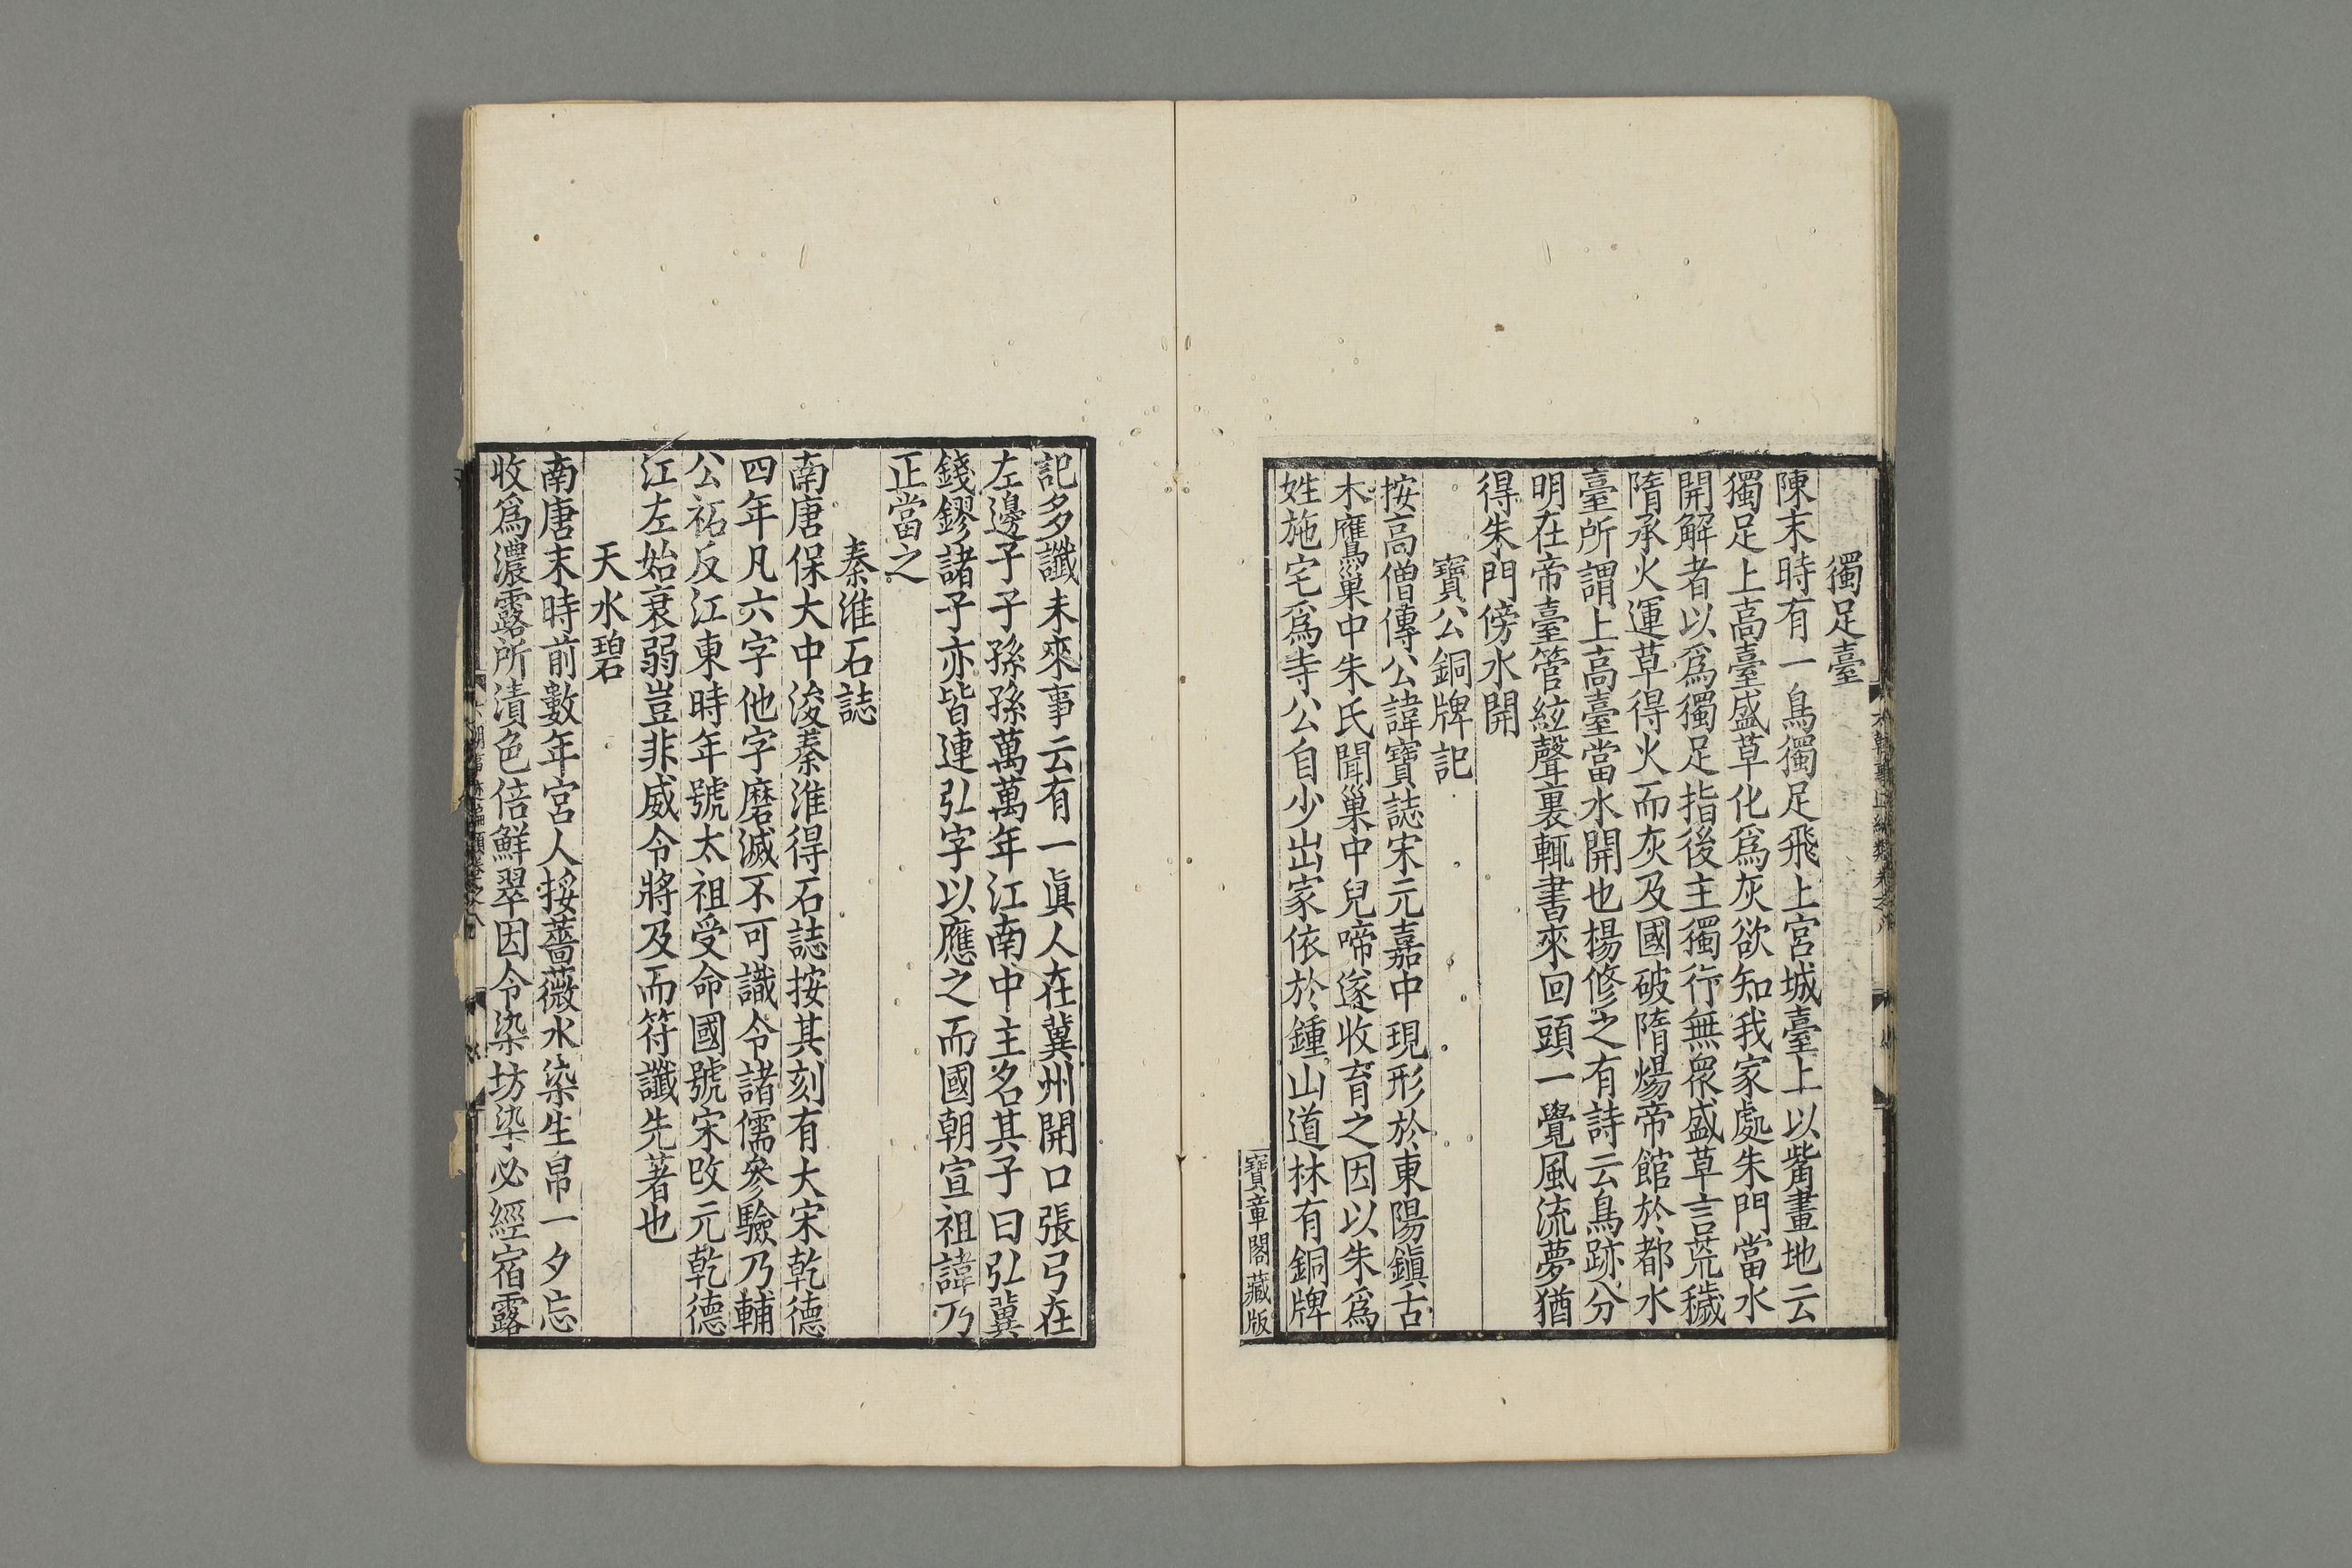 獨足臺
陳末時有一鳥獨足飛上宮城臺上以觜畫地云
獨足上高臺盛草化爲灰欲知我家處朱門當水
開解者以爲獨足指後主獨行無衆盛草言荒穢
隋承火運草得火而灰及國破隋煬帝館於都水
臺所謂上高臺當水開也楊修之有詩云鳥跡分
明在帝臺管絃聲裏輒書來回頭一覺風流夢猶
得朱門傍水開
寶公銅牌記
按高僧傳公諱寶誌宋元嘉中現形於東陽鎭古
木鷹巢中朱氏聞巢中兒啼遂收育之因以朱爲
姓施宅爲寺公自少出家依於鍾山道林有銅牌
寶章閣藏版
記多讖未來事云有一眞人在冀州開口張弓在
左邊子子孫孫萬萬年江南中主名其子曰弘冀
錢鏐諸子亦皆連弘字以應之而國朝宣祖諱乃
正當之
秦淮石誌
南唐保大中浚秦淮得石誌按其刻有大宋乾德
四年凡六字他字磨滅不可識令諸儒參驗乃輔
公祏反江東時年號太祖受命國號宋改元乾德
江左始衰弱豈非威令將及而符讖先著也
天水碧
南唐末時前數年宮人挼薔薇水染生帛一夕忘
收爲濃露所漬色倍鮮翠因令染坊染必經宿露